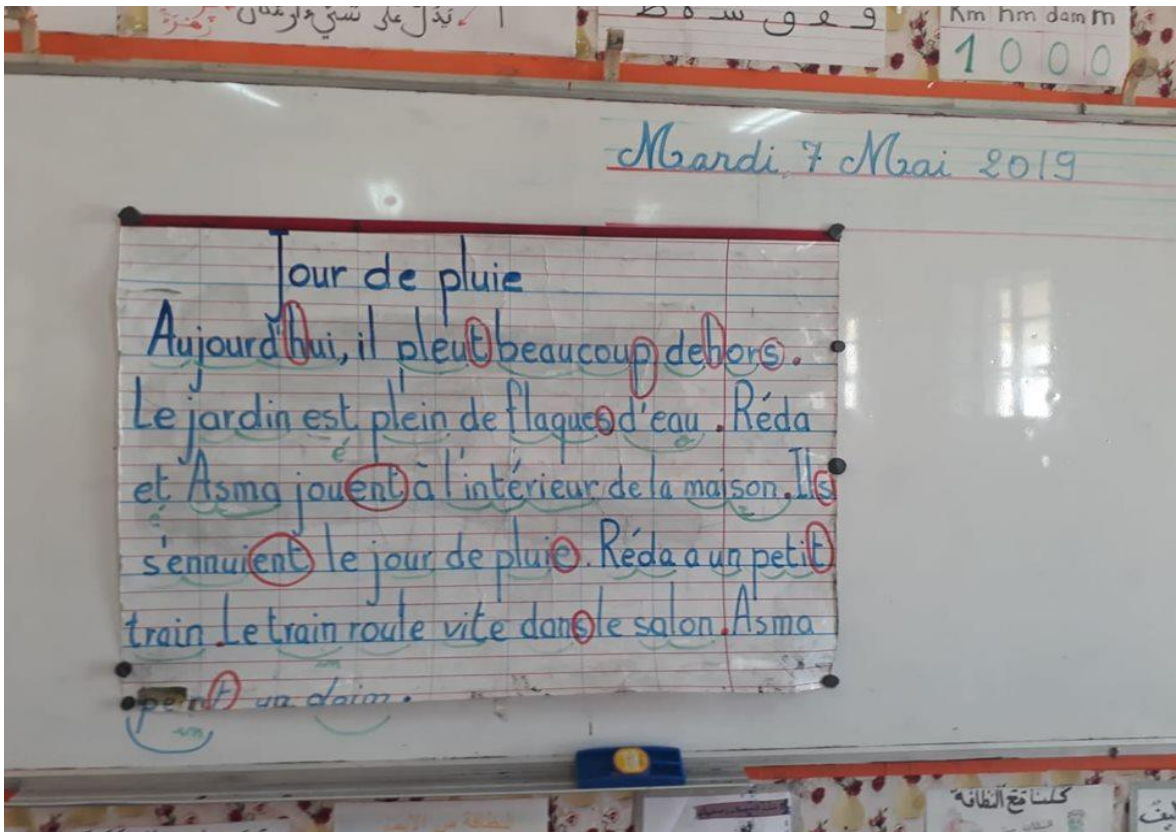 ا يدل على
و ف ق س ة ط
Km hm dam m
1 0 0 0
Mardi 7 Mai 2019
Jour de pluie
Aujourd'hui, il pleut beaucoup dehors.
Le jardin est plein de flaques d'eau. Réda
é
et Asma jouent à l'intérieur de la maison. Ils
é
s'ennuient le jour de pluie. Réda a un petit
train. Le train roule vite dans le salon. Asma
peint un daim.
كلنا مع النظافة